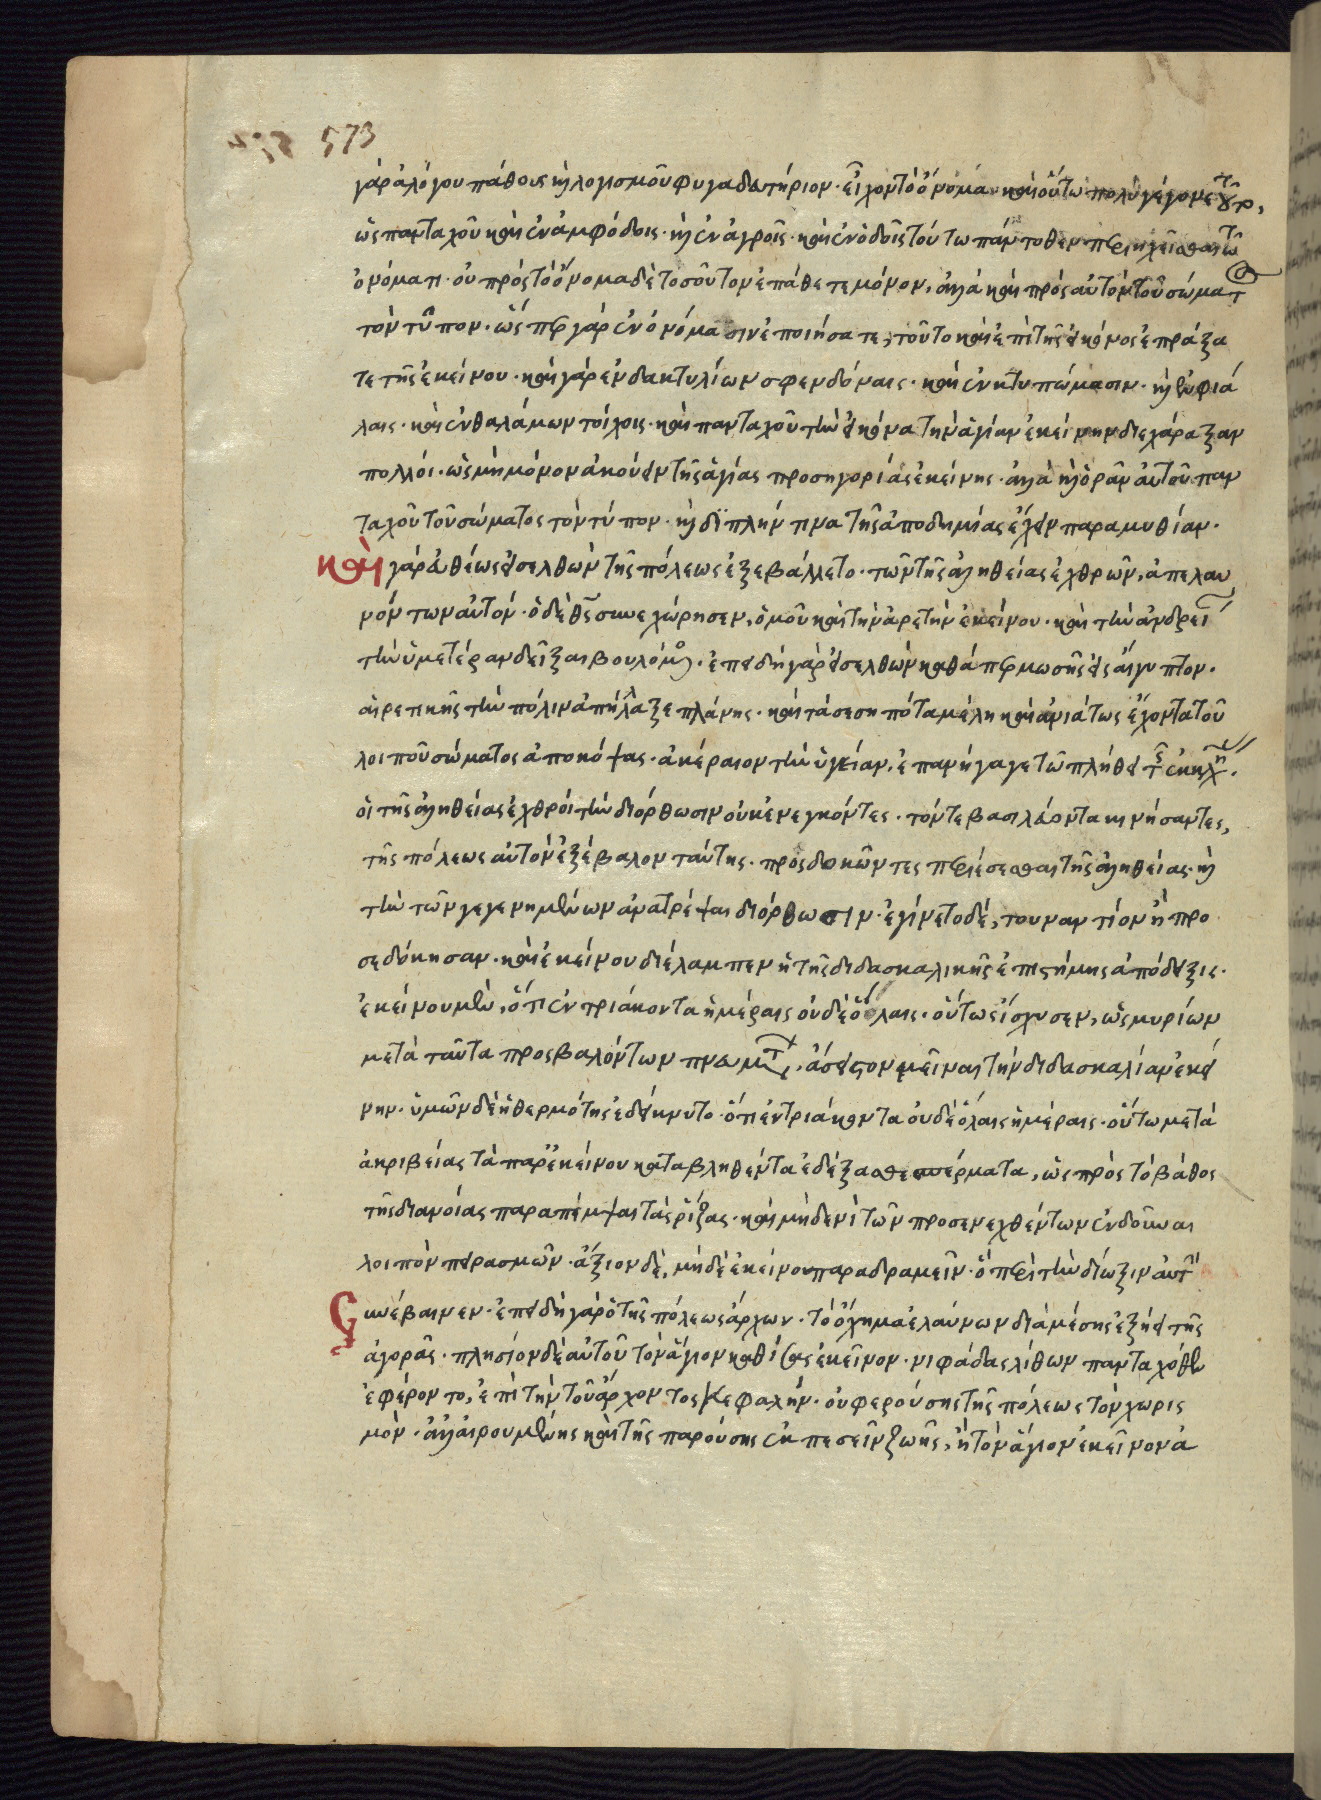 573
γὰρ ἀλόγου πάθους καὶ λογισμοῦ φυγαδευτήριον· εἶχον τὸ ὄνομα· καὶ οὕτω πολὺ γέγονε τοῦτο,
ὡς πανταχοῦ καὶ ἐν ἀμφόδοις· καὶ ἐν ἀγροῖς· καὶ ἐν ὁδοῖς τούτω πάντοθεν περιηχεῖσθαι τῶ
ὀνόματι· οὐ πρὸς τὸ ὄνομα δὲ τοσοῦτον ἐπάθετε μόνον, ἀλλὰ καὶ πρὸς αὐτὸν τοῦ σώματος
τὸν τύπον· ὥσπερ γὰρ ἐν ὀνόμασιν ἐποιήσατε, τοῦτο καὶ ἐπὶ τῆς εἰκόνος ἐπράξα
τε τῆς ἐκείνου· καὶ γὰρ ἐν δακτυλίων σφενδόναις· καὶ ἐν ἐκτυπώμασιν· καὶ ἐν φιά
λαις· καὶ ἐν θαλάμων τοίχοις· καὶ πανταχοῦ τὴν εἰκόνα τὴν ἁγίαν ἐκείνην διεχάραξαν
πολλοί· ὡς μὴ μόνον ἀκούειν τῆς ἁγίας προσηγορίας ἐκείνης· ἀλλὰ καὶ ὁρᾶν αὐτοῦ παν
ταχοῦ τοῦ σώματος τὸν τύπον· καὶ διπλήν τινα τῆς ἀποδημίας ἔχειν παραμυθίαν·
καὶ γὰρ εὐθέως εἰσελθὼν τῆς πόλεως ἐξεβάλλετο· τῶν τῆς ἀληθείας ἐχθρῶν, ἀπελαυ
νόντων αὐτόν· ὁ δὲ θεὸς συνεχώρησεν, ὁμοῦ καὶ τὴν ἀρετὴν ἐκείνου· καὶ τὴν ἀνδρείαν
τὴν ὑμετέραν δεῖξαι βουλόμενος· ἐπειδὴ γὰρ εἰσελθὼν καθάπερ μωσῆς εἰς αἴγυπτον·
αἱρετικῆς τὴν πόλιν ἀπήλλαξε πλάνης· καὶ τὰ σεσηπότα μέλη καὶ ἀνιάτως ἔχοντα τοῦ
λοιποῦ σώματος ἀποκόψας· ἀκέραιον τὴν ὑγείαν, ἐπανήγαγε τῶ πλήθει τῆς ἐκκλησίας·
οἱ τῆς ἀληθείας ἐχθροὶ τὴν διόρθωσιν οὐκ ἐνεγκόντες· τόν τε βασιλεύοντα κινήσαντες,
τῆς πόλεως αὐτὸν ἐξέβαλον ταύτης· προσδοκῶντες περιέσεσθαι τῆς ἀληθείας· καὶ
τὴν τῶν γεγενημένων ἀνατρέψαι διόρθωσιν· ἐγίνετο δέ, τουναντίον ἢ προ
σεδόκησαν· καὶ ἐκείνου διέλαμπεν ἡ τῆς διδασκαλικῆς ἐπιστήμης ἀπόδειξις·
ἐκείνου μὲν, ὅτι ἐν τριάκοντα ἡμέραις οὐδὲ ὅλαις· οὕτως ἴσχυσεν, ὡς μυρίων
μετὰ ταῦτα προσβαλόντων πνευμάτων, ἄσειστον μεῖναι τὴν διδασκαλίαν ἐκεί
νην· ὑμῶν δὲ ἡ θερμότης ἐδείκνυτο· ὅτι ἐν τριάκοντα οὐδὲ ὅλαις ἡμέραις· οὕτω μετὰ
ἀκριβείας τὰ παρ' ἐκείνου καταβληθέντα ἐδέξασθε σπέρματα, ὡς πρὸς τὸ βάθος
τῆς διανοίας παραπέμψαι τὰς ῥίζας· καὶ μηδενὶ τῶν προσενεχθέντων ἐνδοῦναι
λοιπὸν πειρασμῶν· ἄξιον δὲ, μὴ δὲ ἐκείνου παραδραμεῖν· ὅπερ ἐπὶ τὴν δίωξιν αὐτοῦ
συνέβαινεν· ἐπειδὴ γὰρ ὁ τῆς πόλεως ἄρχων· τὸ ὄχημα ἐλαύνων διὰ μέσης ἐξήει τῆς
ἀγορᾶς· πλησίον δὲ αὐτοῦ τὸν ἅγιον καθίσας ἐκεῖνον· νιφάδας λίθων πανταχόθεν
ἐφέροντο, ἐπὶ τὴν τοῦ ἄρχοντος κεφαλήν· οὐ φερούσης τῆς πόλεως τὸν χωρις
μὸν· ἀλλ' αἱρουμένης καὶ τῆς παρούσης ἐκπεσεῖν ζωῆς, ἢ τὸν ἅγιον ἐκεῖνον ἀ